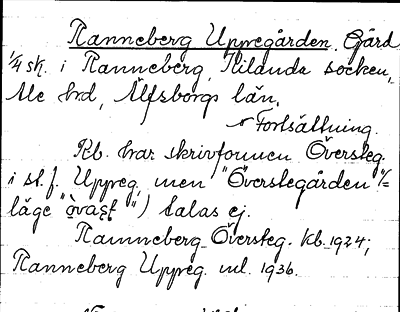 Ranneberg Uppregården, Gård,
1/4 sk. i Ranneberg, Kilanda socken,
Ale hrd, Älfsborgs län.
Fortsättning.
Kb. har skrivformen Översteg.
i st. f. Uppreg. men "Överstegården"/=
läge " ") talas ej.
Ranneberg Översteg. kb. 1924;
Ranneberg Uppreg. ml. 1936.